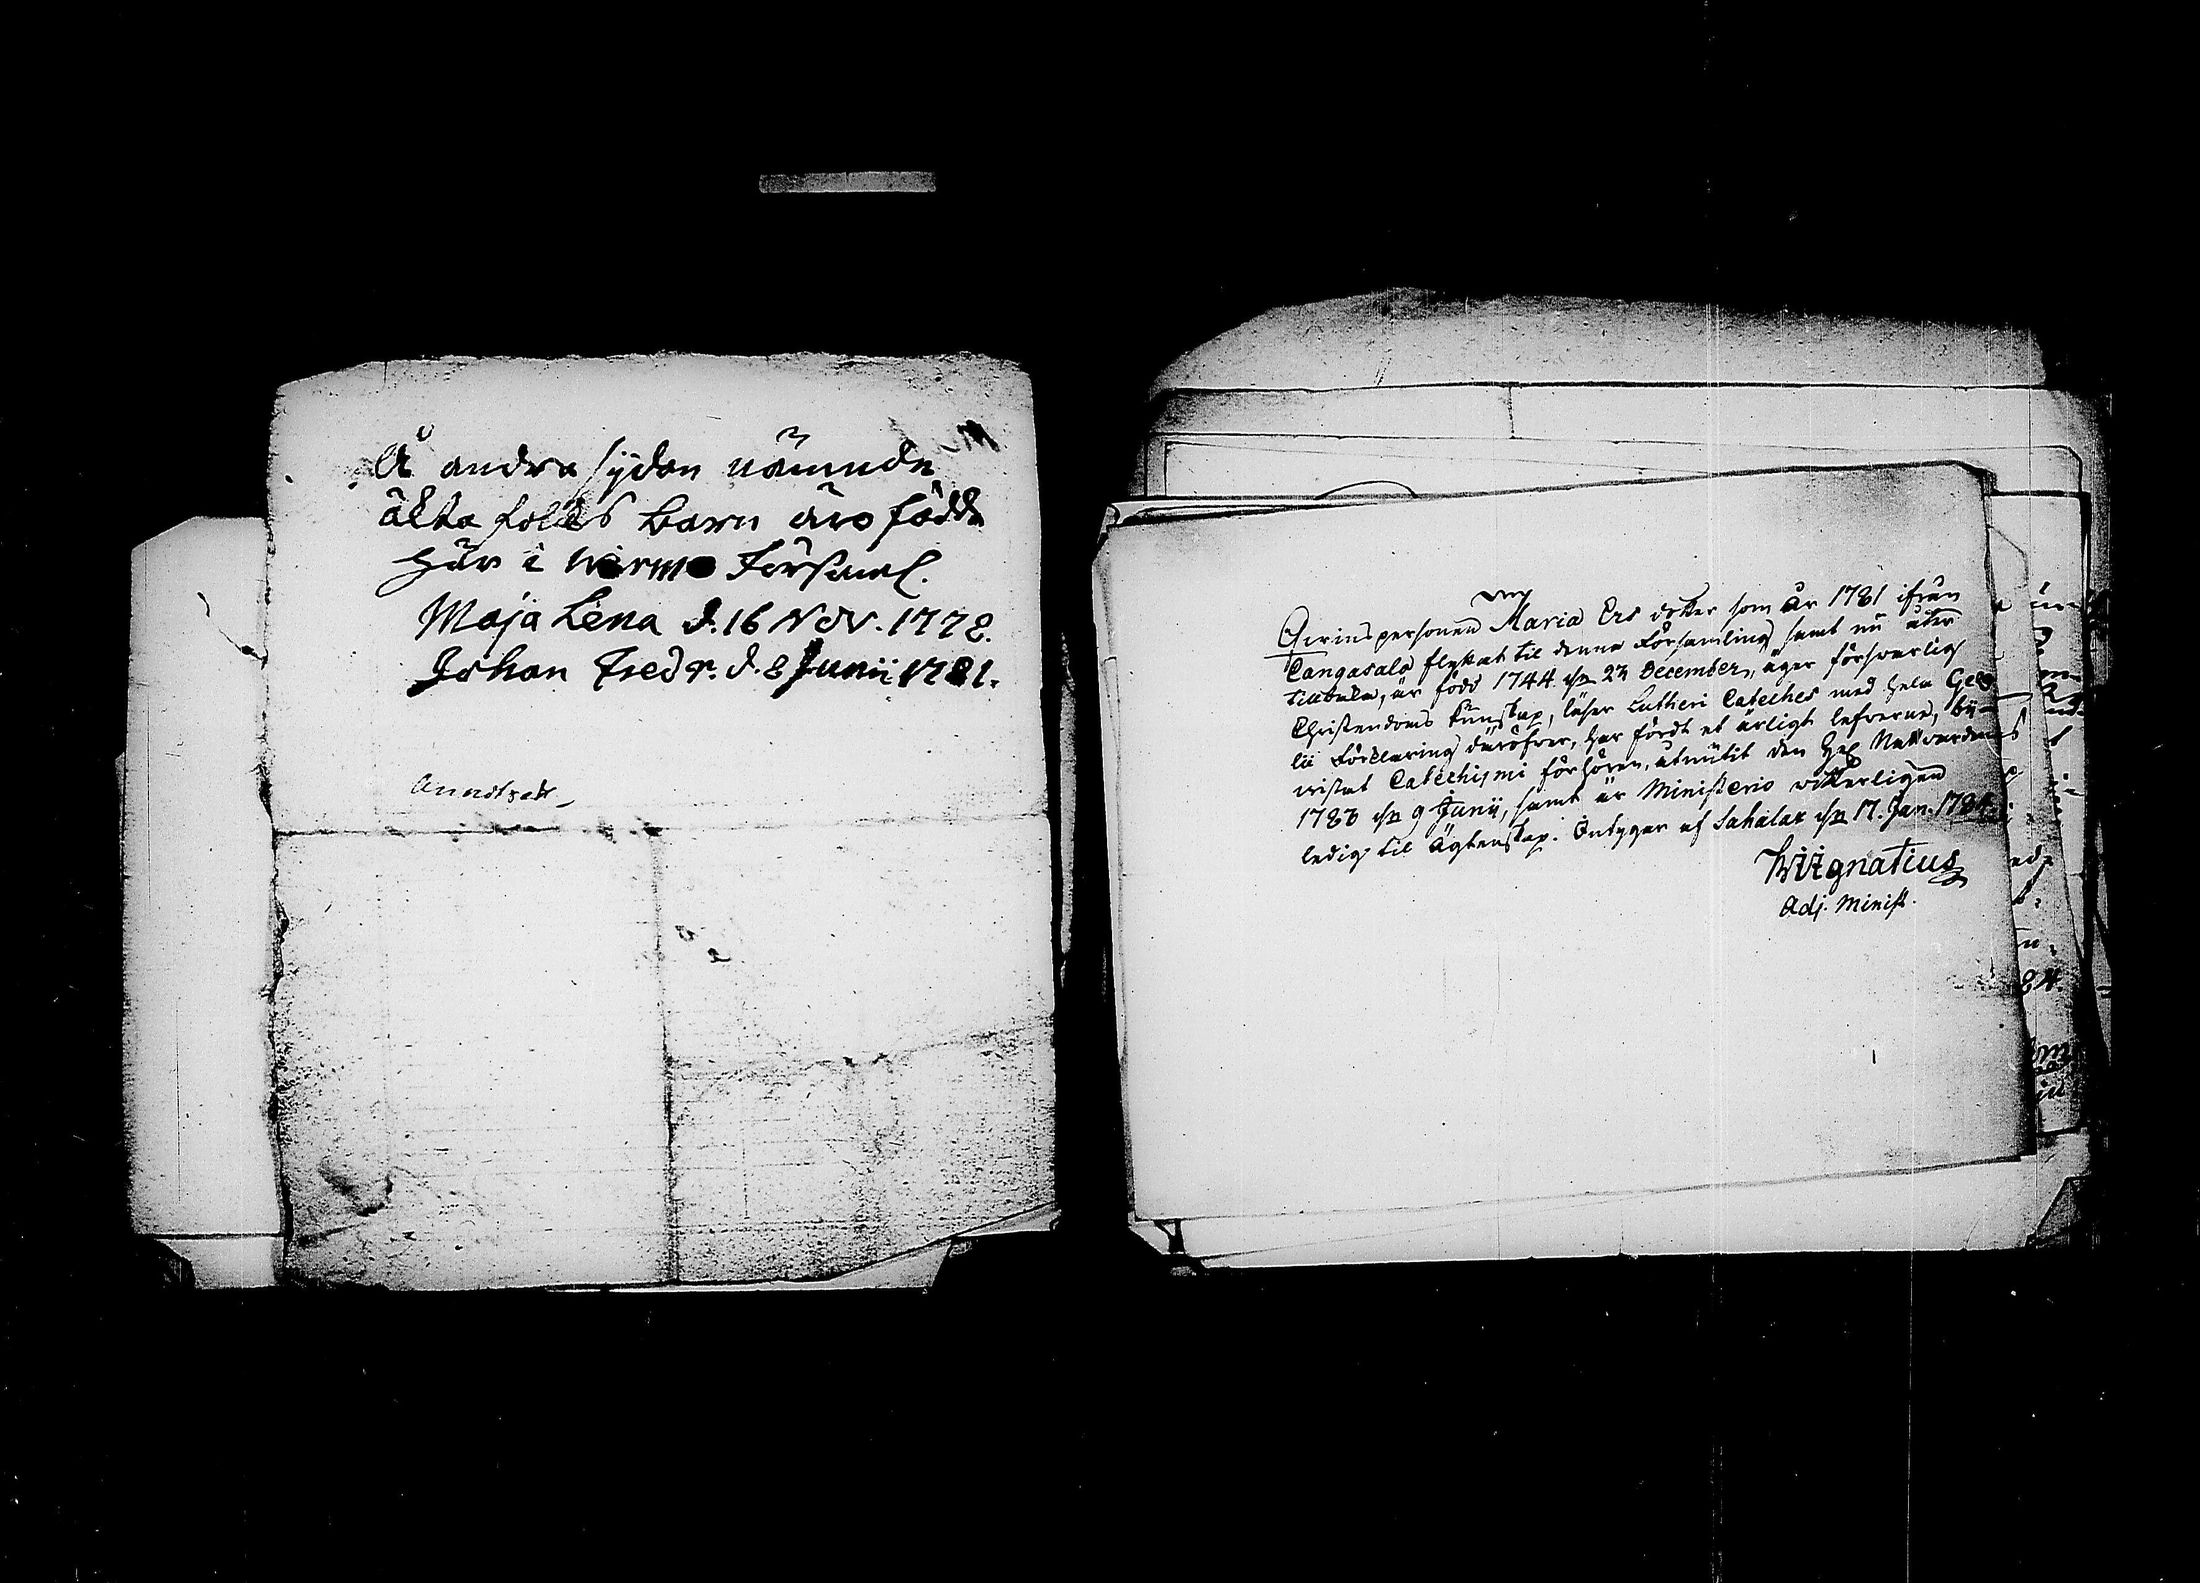 Å andra sydan nämnde
äkta folks barn äro födde
här i Wirmo Församl.
Maja Lena d. 16 Nov. 1778.
Johan Fredr. d. 8 Junii 1781.
Annotert
Qvinspersonen Maria Ers dotter som år 1781 ifrån
Cangasala flyttat til denna Församling samt nu åter
tilbaka, är född 1744 d. 23 December, äger försvarlig
Christendoms kunskap, läser Lutheri Cateches med hela Gez-
lii Förklaring däröfver, har fördt et ärligt lefverne, bi-
vistat Catechismi förhören, utnütit den Hel. Nattvarden
1783 d. 9 Junii, samt är Ministerio vitterligen
ledig til Ägtenskap. Intygar af Sahalax d. 17. Jan. 1784.
Wignatius
Adj. Minist.